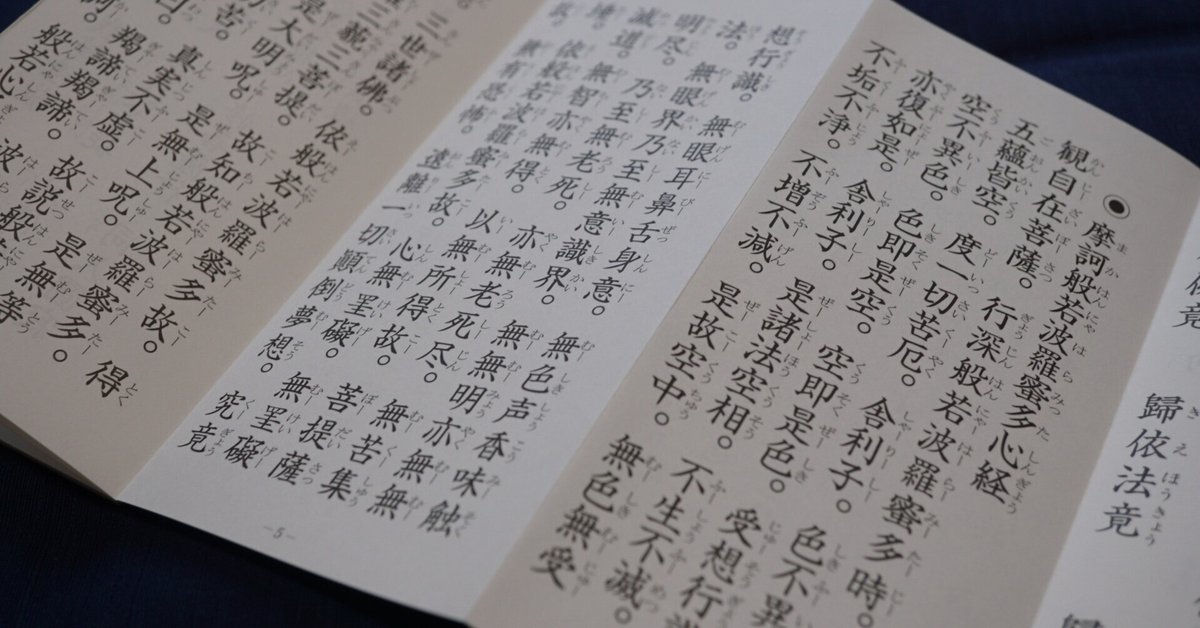 竟　歸依法竟
摩訶般若波羅蜜多心経
観自在菩薩。行深般若波羅蜜多時。
五蘊皆空。度一切苦厄。舍利子。色不異
空不異色。色即是空。空即是色。受想行
亦復如是。舍利子。是諸法空相。不生不滅。
不垢不浄。不増不減。是故空中。無色無受
想行識。無眼耳鼻舌身意。無色声香味触
法。無眼界乃至無意識界。無無明亦無無
明尽。乃至無老死。亦無老死尽。無苦集
滅道。無智亦無得。以無所得故。菩提薩
埵。依般若波羅蜜多故。心無罣礙。無罣礙
無有恐怖。遠離一切顛倒夢想。究竟
三世諸佛。依般若波羅蜜多故。得
三藐三菩提。故知般若波羅蜜多。
是大明呪。是無上呪。是無等
苦。真実不虚。故説般若
羯諦羯諦。波
般若心
-5-